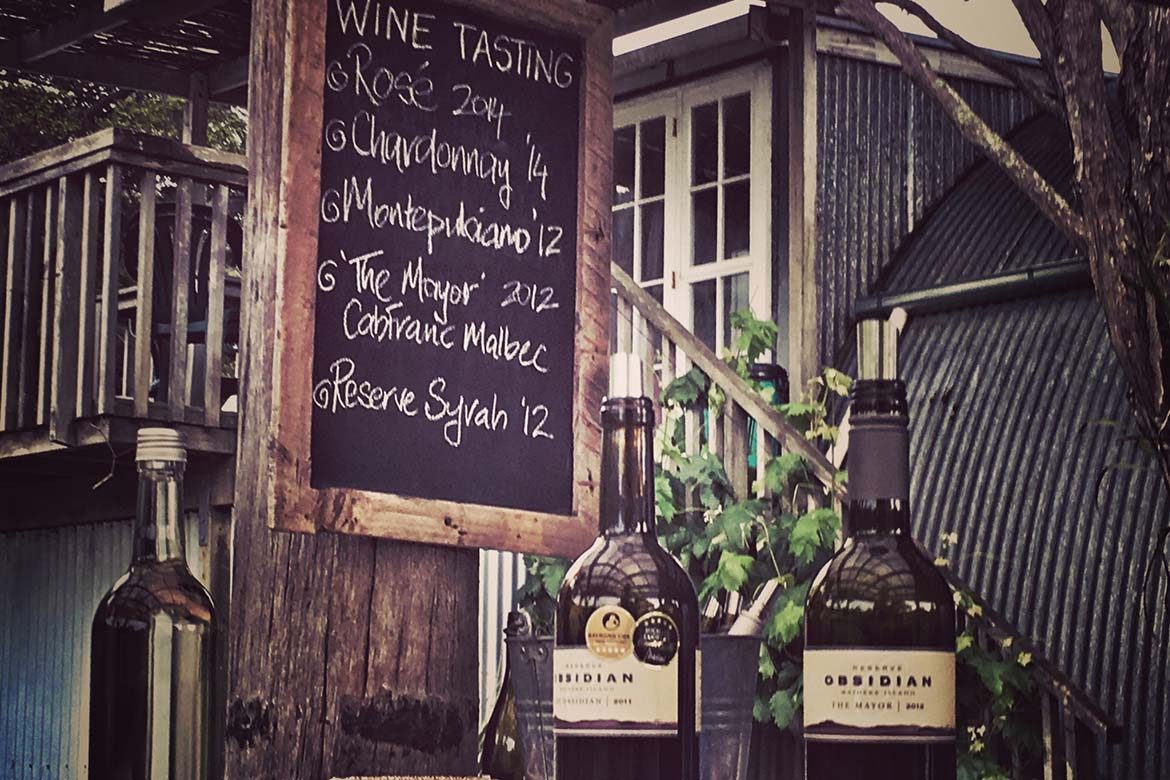 WINE TASTING
Rosé 2014
Chardonnay '14
Montepulciano '12
'The Mayor' 2012
Cabfranc Malbec
Reserve Syrah '12
RESERVE
OBSIDIAN
WAIHEKE ISLAND
OBSIDIAN | 2011
RESERVE
OBSIDIAN
WAIHEKE ISLAND
THE MAYOR | 2012